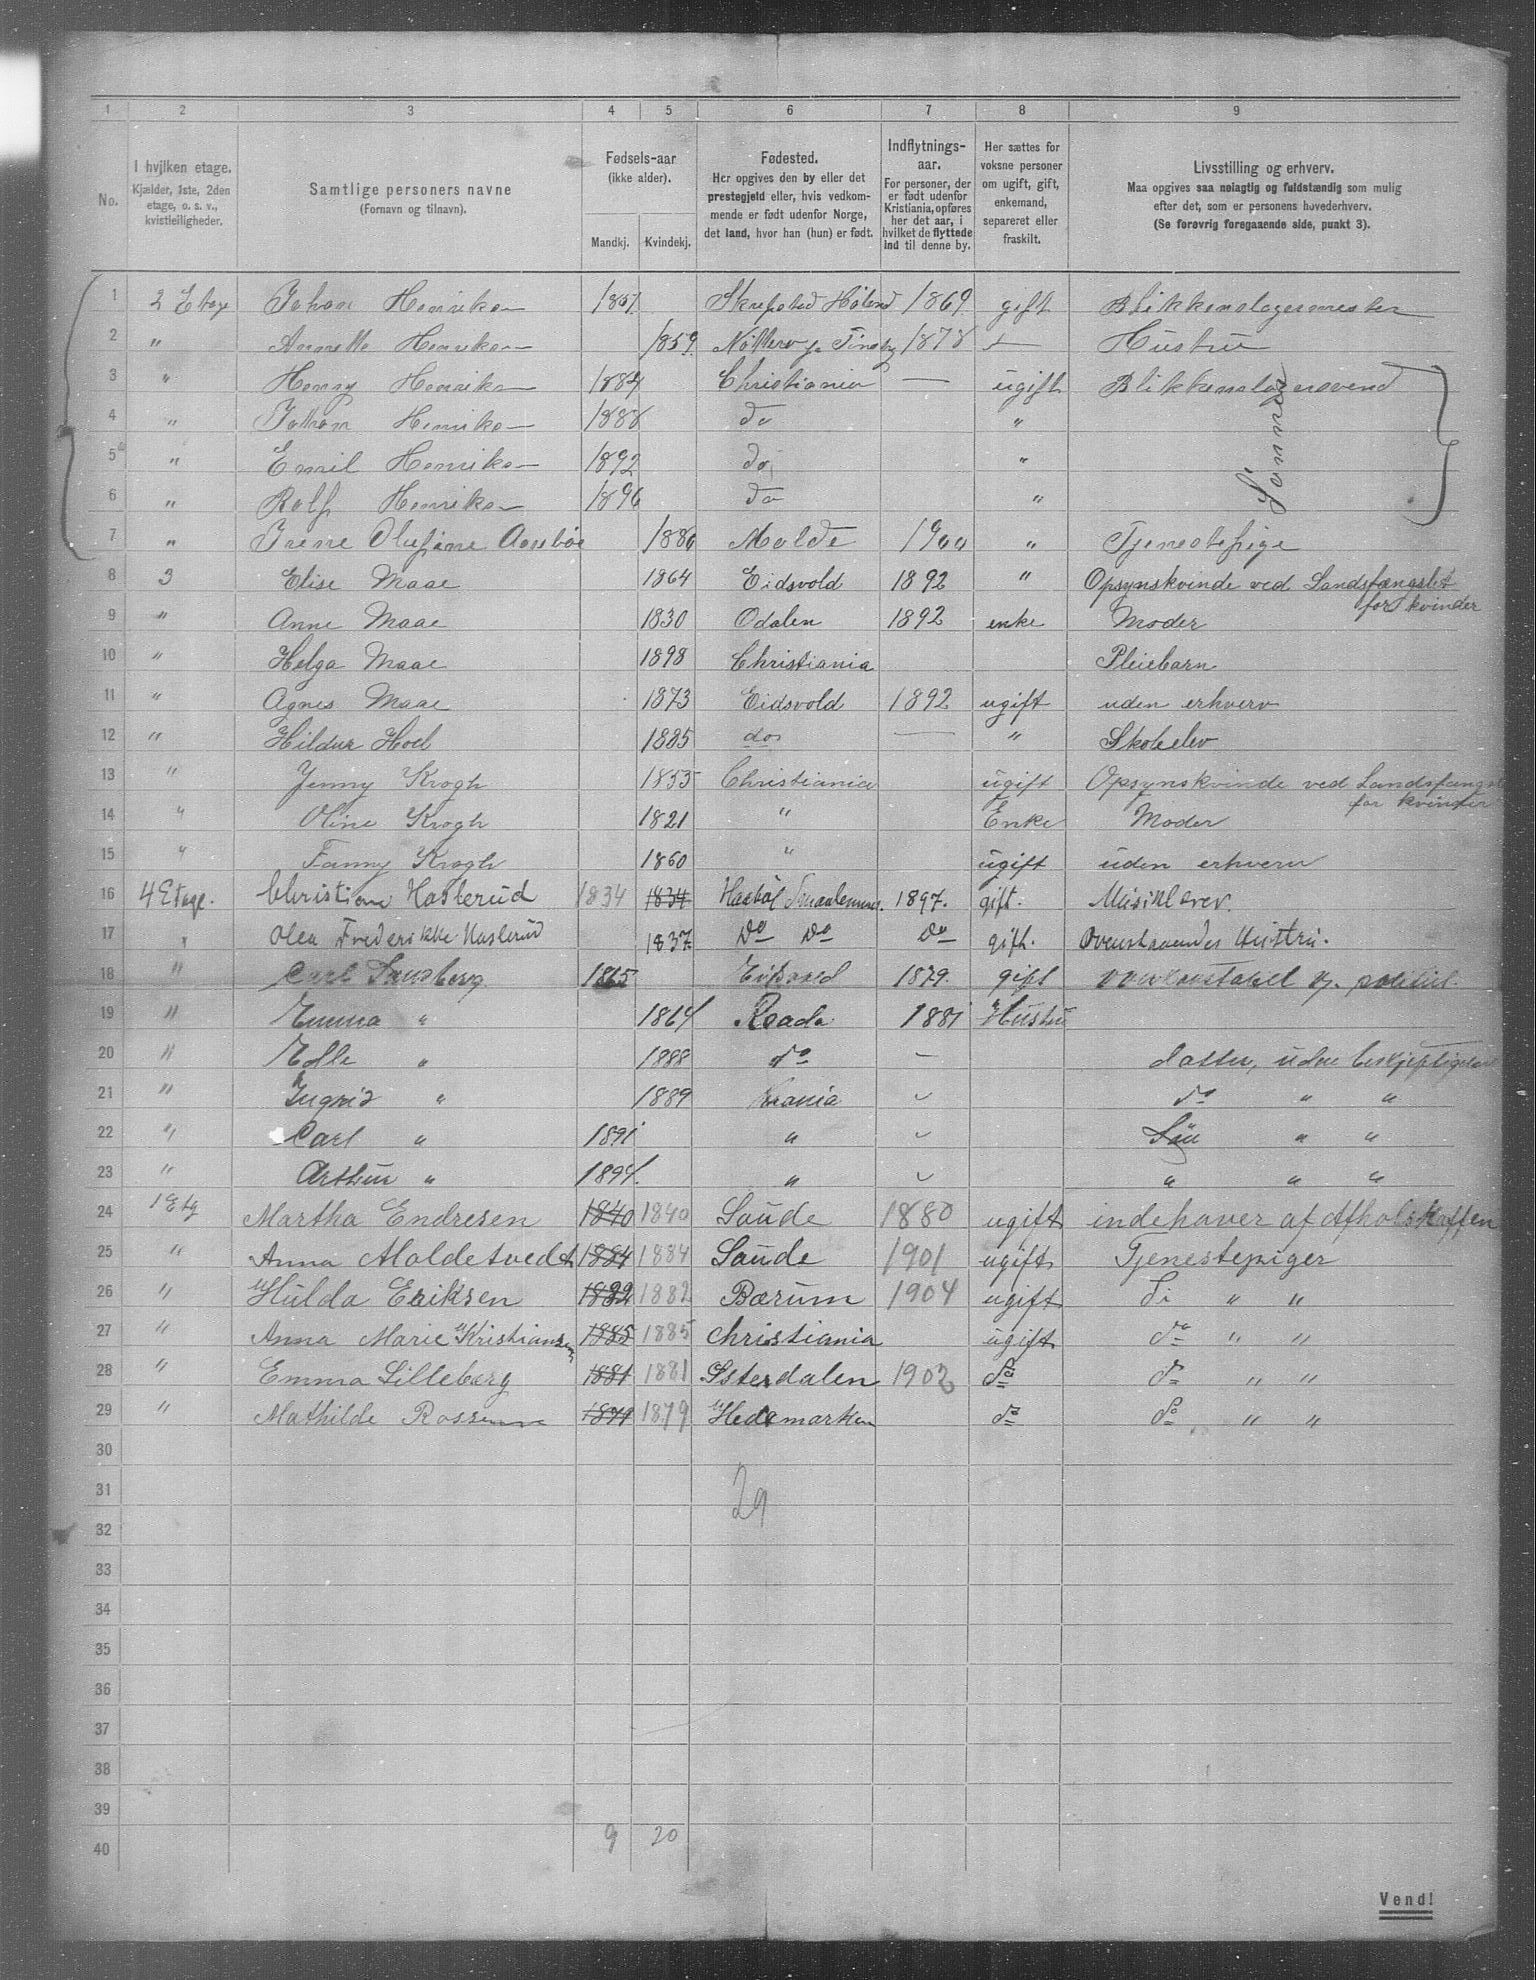 1 2 3 4 5 6 7 8 9
No.
I hvilken etage.
Kjælder, 1ste, 2den
etage, o. s. v.,
kvistleiligheder.
Samtlige personers navne
(Fornavn og tilnavn).
Fødsels-aar
(ikke alder).
Mandkj. Kvindekj.
Fødested.
Her opgives den by eller det
prestegjeld eller, hvis vedkom-
mende er født udenfor Norge,
det land, hvor han (hun) er født.
Indflytnings-
aar.
For personer, der
er født udenfor
Kristiania, opføres
her det aar, i
hvilket de flyttede
ind til denne by.
Her sættes for
voksne personer
om ugift, gift,
enkemand,
separeret eller
fraskilt.
Livsstilling og erhverv.
Maa opgives saa nøiagtig og fuldstændig som mulig
efter det, som er personens hovederhverv.
(Se forøvrig foregaaende side, punkt 3).
1 2 Etage Johan Henriksen Høland 1869 gift Blikkenslagermester
2 " Annette Henriksen 1859 1878 Hustru
3 " Henny Henriksen 1884 Christiania — ugift Blikkenslagersvend
4 " Johan Henriksen 1888 do "
5 " Emil Henriksen 1892 do "
6 " Rolf Henriksen 1896 do "
Sønner
7 " Irene Olufine 1880 Molde 1900 " Tjenestepige
8 3 Elise Maae 1864 Eidsvold 1892 " Opsynskvinde ved Landsfængslet
for kvinder
9 " Anne Maae 1830 Odalen 1892 enke Moder
10 " Helga Maae 1898 Christiania Pleiebarn
11 " Agnes Maae 1873 Eidsvold 1892 ugift uden erhverv
12 " Hildur Hoel 1885 do — " Skoleelev
13 " Jenny Krogh 1853 Christiania ugift Opsynskvinde ved Landsfængs
for kvinder
14 " Oline Krogh 1821 " Enke Moder
15 " Fanny Krogh 1860 " ugift uden erhverv
16 4 Etage. Christian Haslerud 1834 1834 Smaalenene. 1897. gift. Musiklærer.
17 " Olea Frederikke Haslerud 1837. Do Do Do gift. Ovenstaaendes Hustru.
18 " Carl 1865 Eidsvold 1879. gift politiet.
19 " Emma " 1864 Roada 1881 Hustru
20 " " 1888 do — datter, uden beskjeftigelse
21 " Ingrid " 1889 Krania do " "
22 " Carl " 1891 " Søn " "
23 " Arthur " 1894. " " " "
24 1 Etg Martha Endresen 1840 1840 Saude 1880 ugift indehaver af Afholskaffen
25 " Anna Moldetvedt 1884 1884 Saude 1901 ugift Tjenestepiger
26 " Hulda Eriksen 1882 1882 Bærum 1904 ugift Di " "
27 " Anna Marie Kristiansen 1885 1885 Christiania ugift do " "
28 " Emma Lilleberg 1881 1881 Østerdalen 1902 do do " "
29 " Mathilde 1879 1879 Hedemarken do do " "
30
31
29
32
33
34
35
36
37
38
39
9 20
40
Vend!